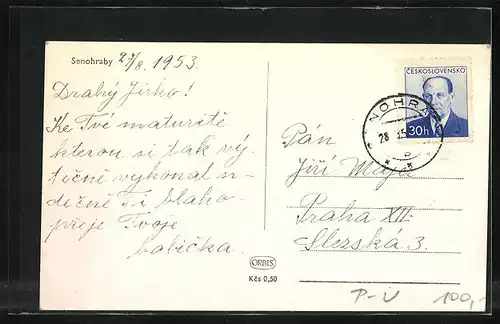 Senohraby 27/8. 1953.
Drahý Jirko!
Ke Tvé maturitě
kterou si tak vý-
tečně vykonal s-
dečně Ti blaho-
přeje Tvoje
babička.
ČESKOSLOVENSKO
30h
28
Pán
Jiří
Praha XII.
Slezská 3.
ORBIS
Kčs 0,50
P-V 100,-